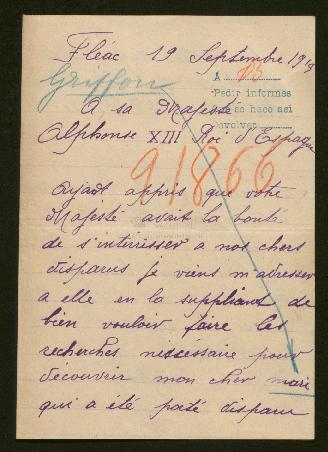 Fléac 19 Septembre 1919
Griffon
A
Pedir informes
se hace asi
Devolver
A sa Majesté
Alphonse XIII Roi d'Espagne
91866
Ayant appris que votre
Majesté avait la bonté
de s'intérisser a nos chers
disparus je viens m'adresser
a elle en la suppliant de
bien vouloir faire les
recherches nécéssaire pour
découvrir mon cher mari
qui a été porté disparu